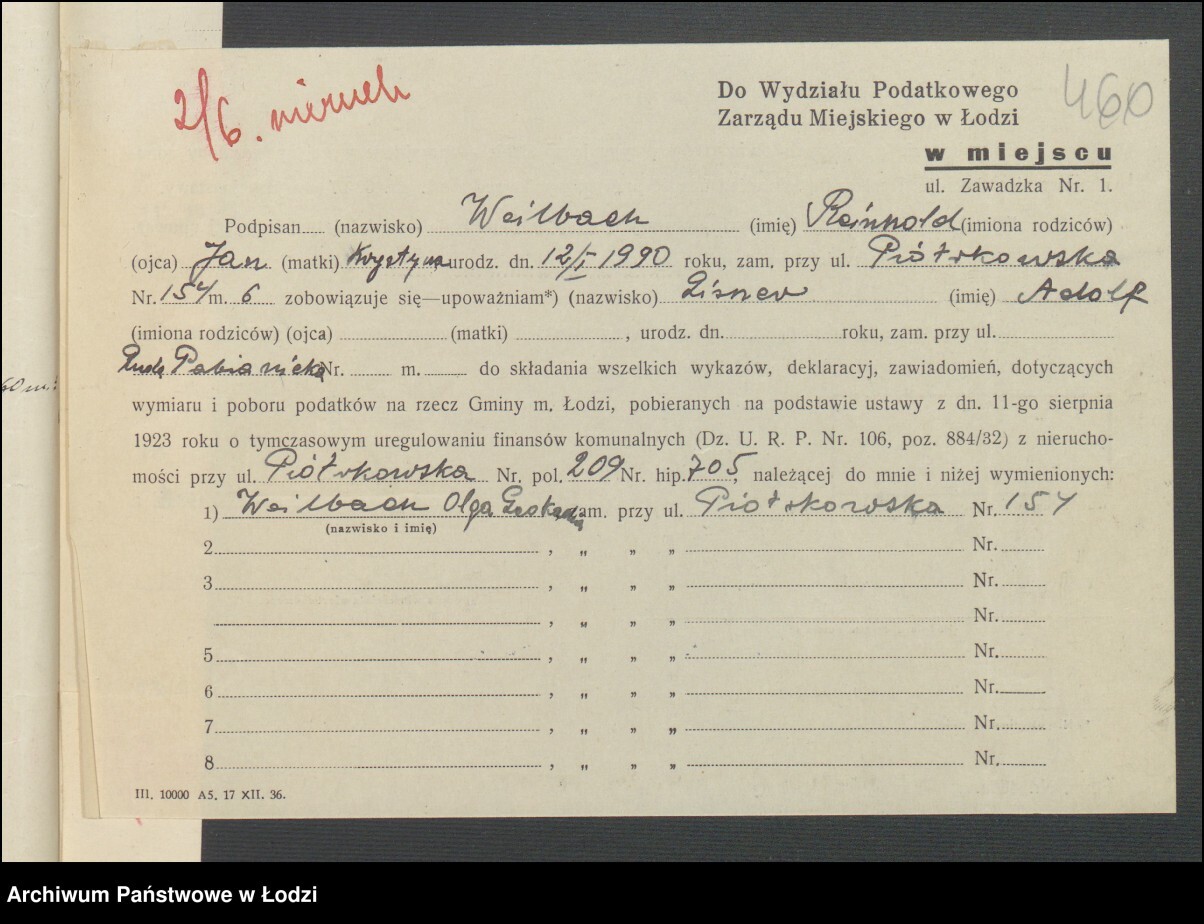 2/6. nieruch
460
Do Wydziału Podatkowego
Zarządu Miejskiego w Łodzi
w miejscu
ul. Zawadzka Nr. 1.
Podpisan...... (nazwisko) Weilbach (imię) Reinhold (imiona rodziców)
(ojca) Jan (matki) Krystyna urodz. dn. 12/I 1990 roku, zam. przy ul. Piótrkowska
Nr. 154 m. 6 zobowiązuje się—upoważniam*) (nazwisko) Lisner (imię) Adolf
(imiona rodziców) (ojca) (matki) , urodz. dn. roku, zam. przy ul.
Ruda Pabianicka Nr. m. do składania wszelkich wykazów, deklaracyj, zawiadomień, dotyczących
wymiaru i poboru podatków na rzecz Gminy m. Łodzi, pobieranych na podstawie ustawy z dn. 11-go sierpnia
1923 roku o tymczasowym uregulowaniu finansów komunalnych (Dz. U. R. P. Nr. 106, poz. 884/32) z nierucho-
mości przy ul. Piótrkowska Nr. pol. 209 Nr. hip. 705, należącej do mnie i niżej wymienionych:
1) Weilbach Olga zam. przy ul. Piotrkowska Nr. 154
(nazwisko i imię)
2 , „ „ „ Nr.
3 , „ „ „ Nr.
, „ „ „ Nr.
5 , „ „ „ Nr.
6 , „ „ „ Nr.
7 , „ „ „ Nr.
8 , „ „ „ Nr.
III. 10000 A5. 17 XII. 36.
Archiwum Państwowe w Łodzi